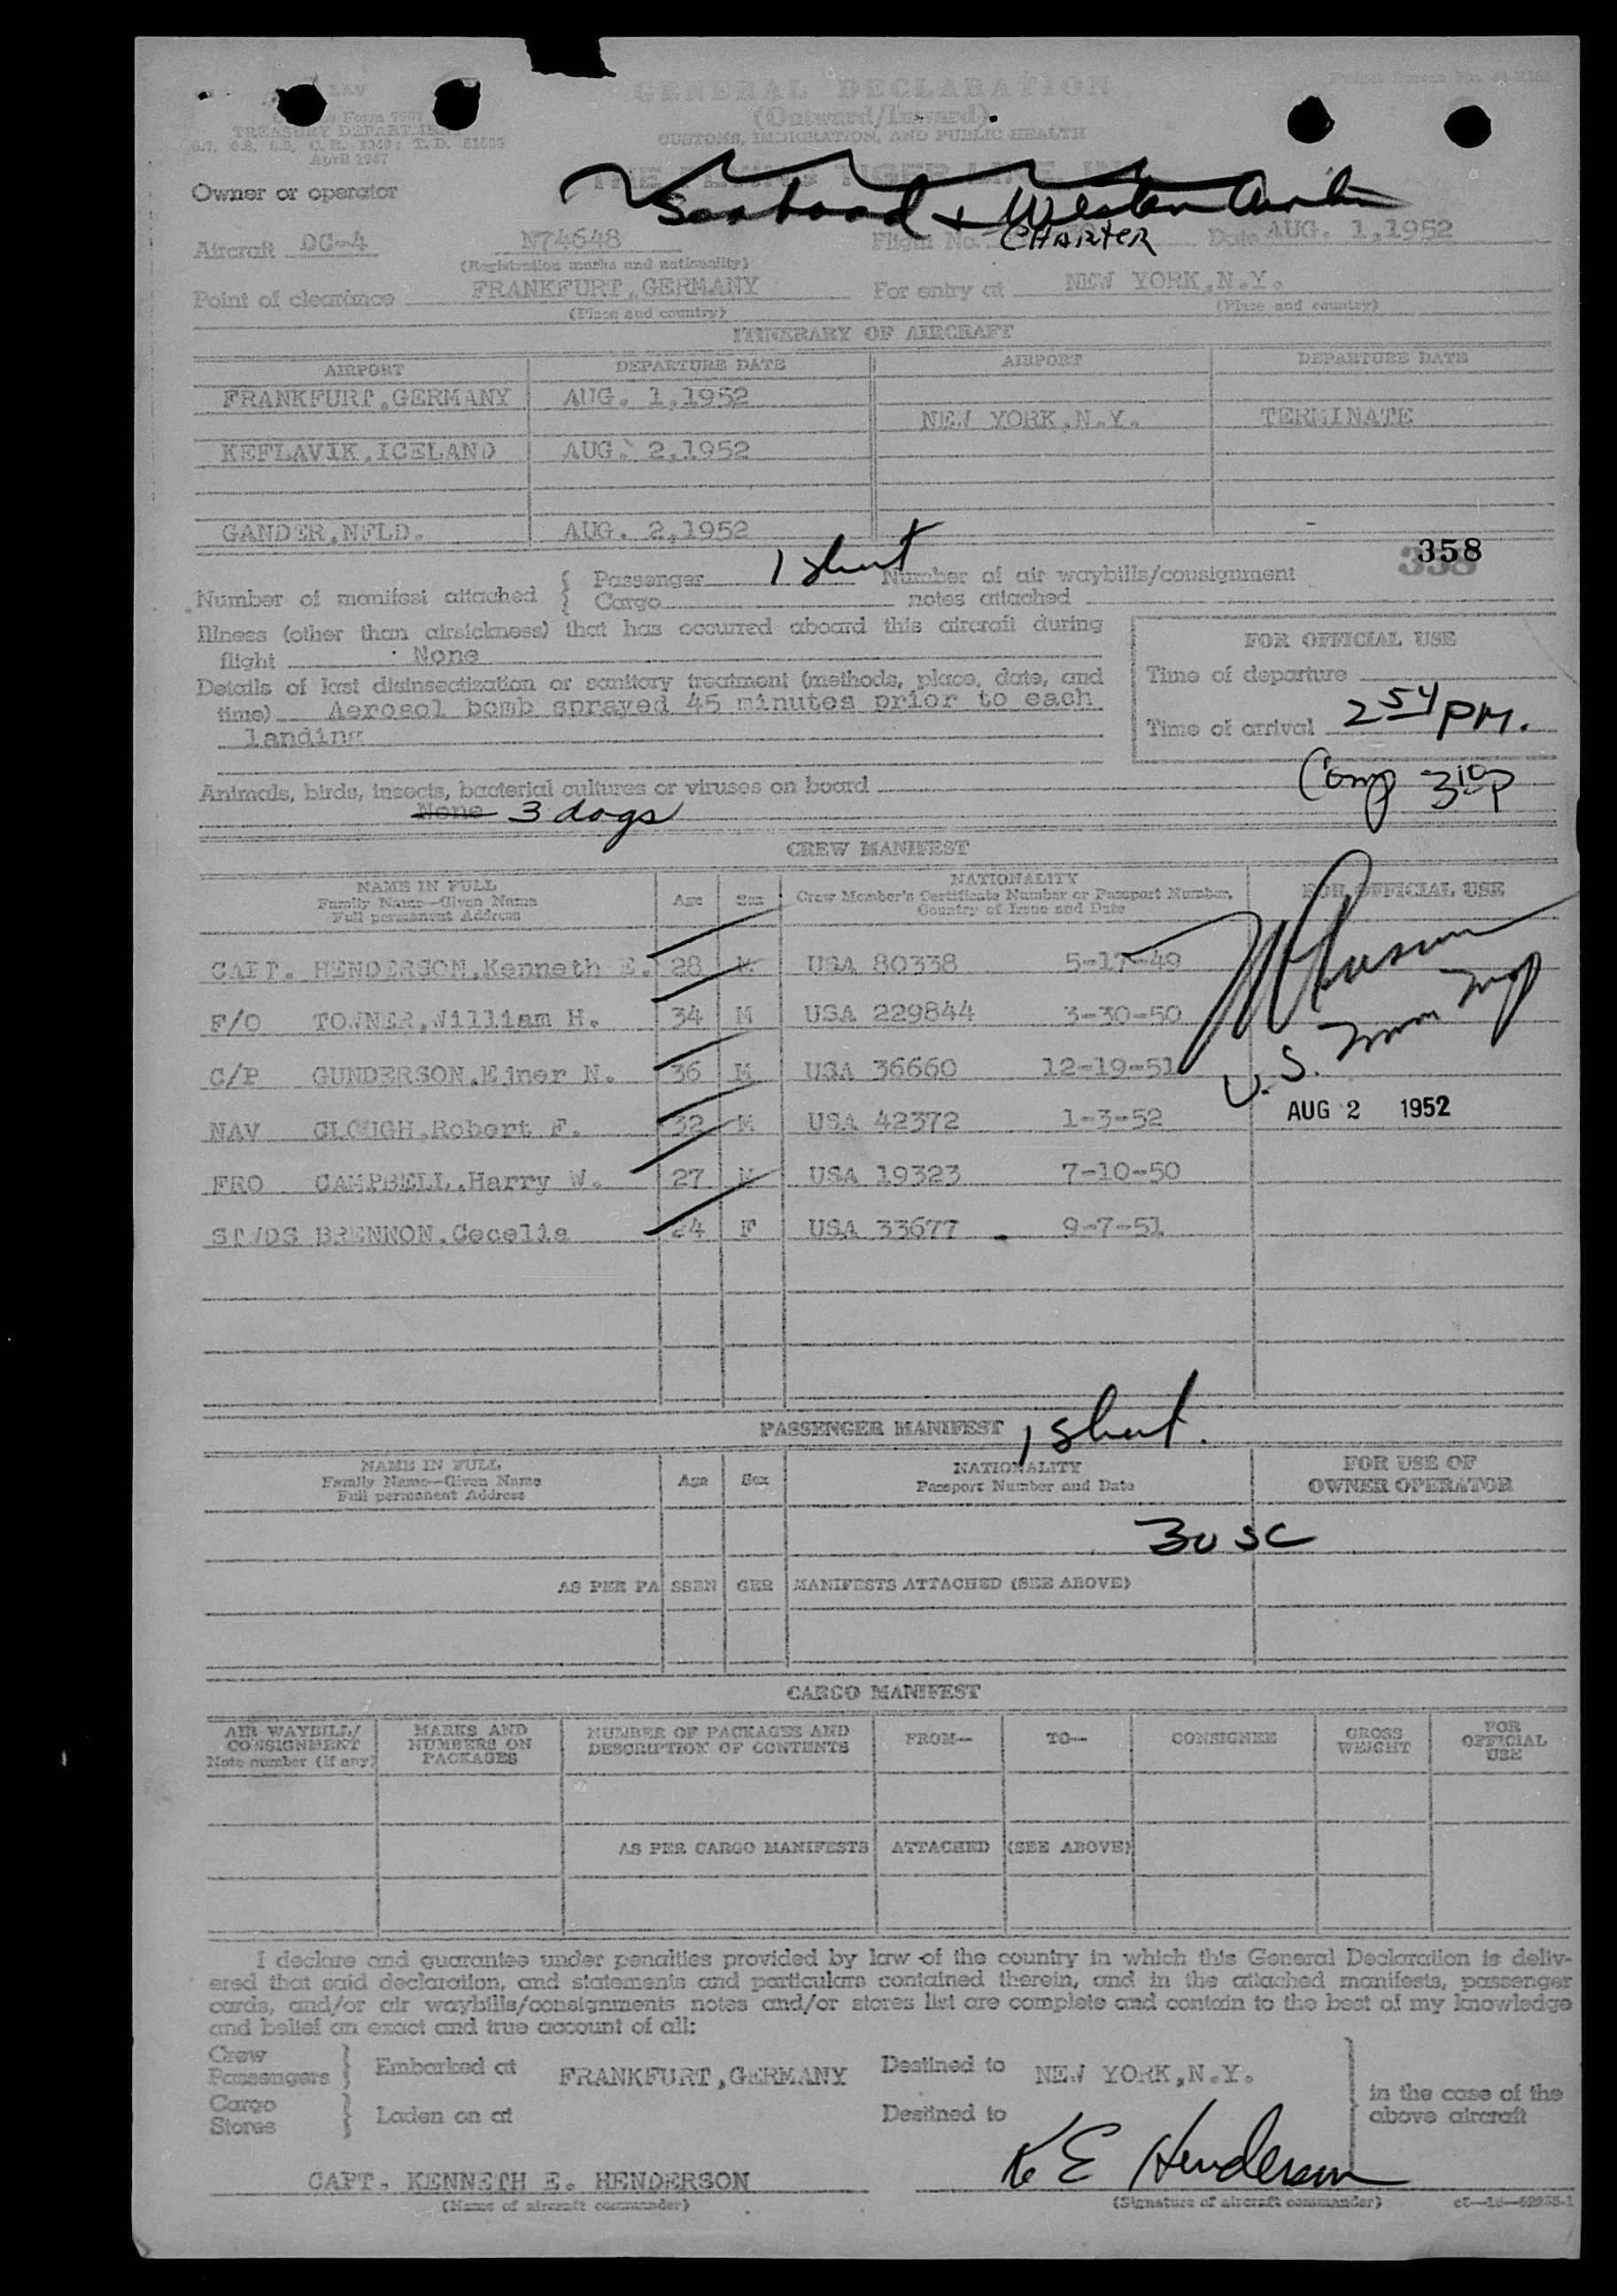 GENERAL DECLARATION
(Outward/Inward)
CUSTOMS, IMMIGRATION, AND PUBLIC HEALTH
Form 7507
TREASURY DEPARTMENT
April 1947
Owner or operator
Seaboard + Western Airlin
CHARTER
Aircraft DC-4 N74648 Flight No. Date AUG. 1,1952
(Registration marks and nationality)
Point of clearance FRANKFURT,GERMANY For entry at NEW YORK,N.Y.
(Place and country) (Place and country)
ITINERARY OF AIRCRAFT
AIRPORT DEPARTURE DATE AIRPORT DEPARTURE DATE
FRANKFURT,GERMANY AUG. 1,1952
NEW YORK,N.Y. TERMINATE
KEFLAVIK,ICELAND AUG. 2,1952
GANDER,NFLD. AUG. 2,1952
358
Number of manifest attached { Passenger 1 sheet Number of air waybills/consignment
Cargo notes attached
Illness (other than airsickness) that has occurred aboard this aircraft during
flight None
Details of last disinsectization or sanitary treatment (methods, place, date, and
time) Aerosol bomb sprayed 45 minutes prior to each
landing
FOR OFFICIAL USE
Time of departure
Time of arrival 2 54 PM.
Comp 3 10 P
Animals, birds, insects, bacterial cultures or viruses on board
None 3 dogs
CREW MANIFEST
NAME IN FULL
Family Name—Given Name
Full permanent Address
Age
Sex
NATIONALITY
Crew Member's Certificate Number or Passport Number,
Country of Issue and Date
FOR OFFICIAL USE
CAPT. HENDERSON,Kenneth E. 28 M USA 80338 5-17-49
F/O TOWNER,William H. 34 M USA 229844 3-30-50
C/P GUNDERSON,Einer N. 36 M USA 36660 12-19-51
NAV CLOUGH,Robert F. 32 M USA 42372 1-3-52
FRO CAMPBELL,Harry W. 27 M USA 19323 7-10-50
STWDS BRENNON,Cecelia 24 F USA 33677 9-7-51
U.S. Imm Insp
AUG 2 1952
PASSENGER MANIFEST 1 sheet.
NAME IN FULL
Family Name—Given Name
Full permanent Address
Age
Sex
NATIONALITY
Passport Number and Date
FOR USE OF
OWNER OPERATOR
3 USC
AS PER PASSENGER MANIFESTS ATTACHED (SEE ABOVE)
CARGO MANIFEST
AIR WAYBILL/
CONSIGNMENT
Note number (if any)
MARKS AND
NUMBERS ON
PACKAGES
NUMBER OF PACKAGES AND
DESCRIPTION OF CONTENTS
FROM—
TO—
CONSIGNEE
GROSS
WEIGHT
FOR
OFFICIAL
USE
AS PER CARGO MANIFESTS ATTACHED (SEE ABOVE)
I declare and guarantee under penalties provided by law of the country in which this General Declaration is deliv-
ered that said declaration, and statements and particulars contained therein, and in the attached manifests, passenger
cards, and/or air waybills/consignments notes and/or stores list are complete and contain to the best of my knowledge
and belief an exact and true account of all:
Crew
Passengers } Embarked at FRANKFURT,GERMANY Destined to NEW YORK,N.Y.
Cargo
Stores } Laden on at Destined to
in the case of the
above aircraft
CAPT. KENNETH E. HENDERSON K E Henderson
(Name of aircraft commander) (Signature of aircraft commander)